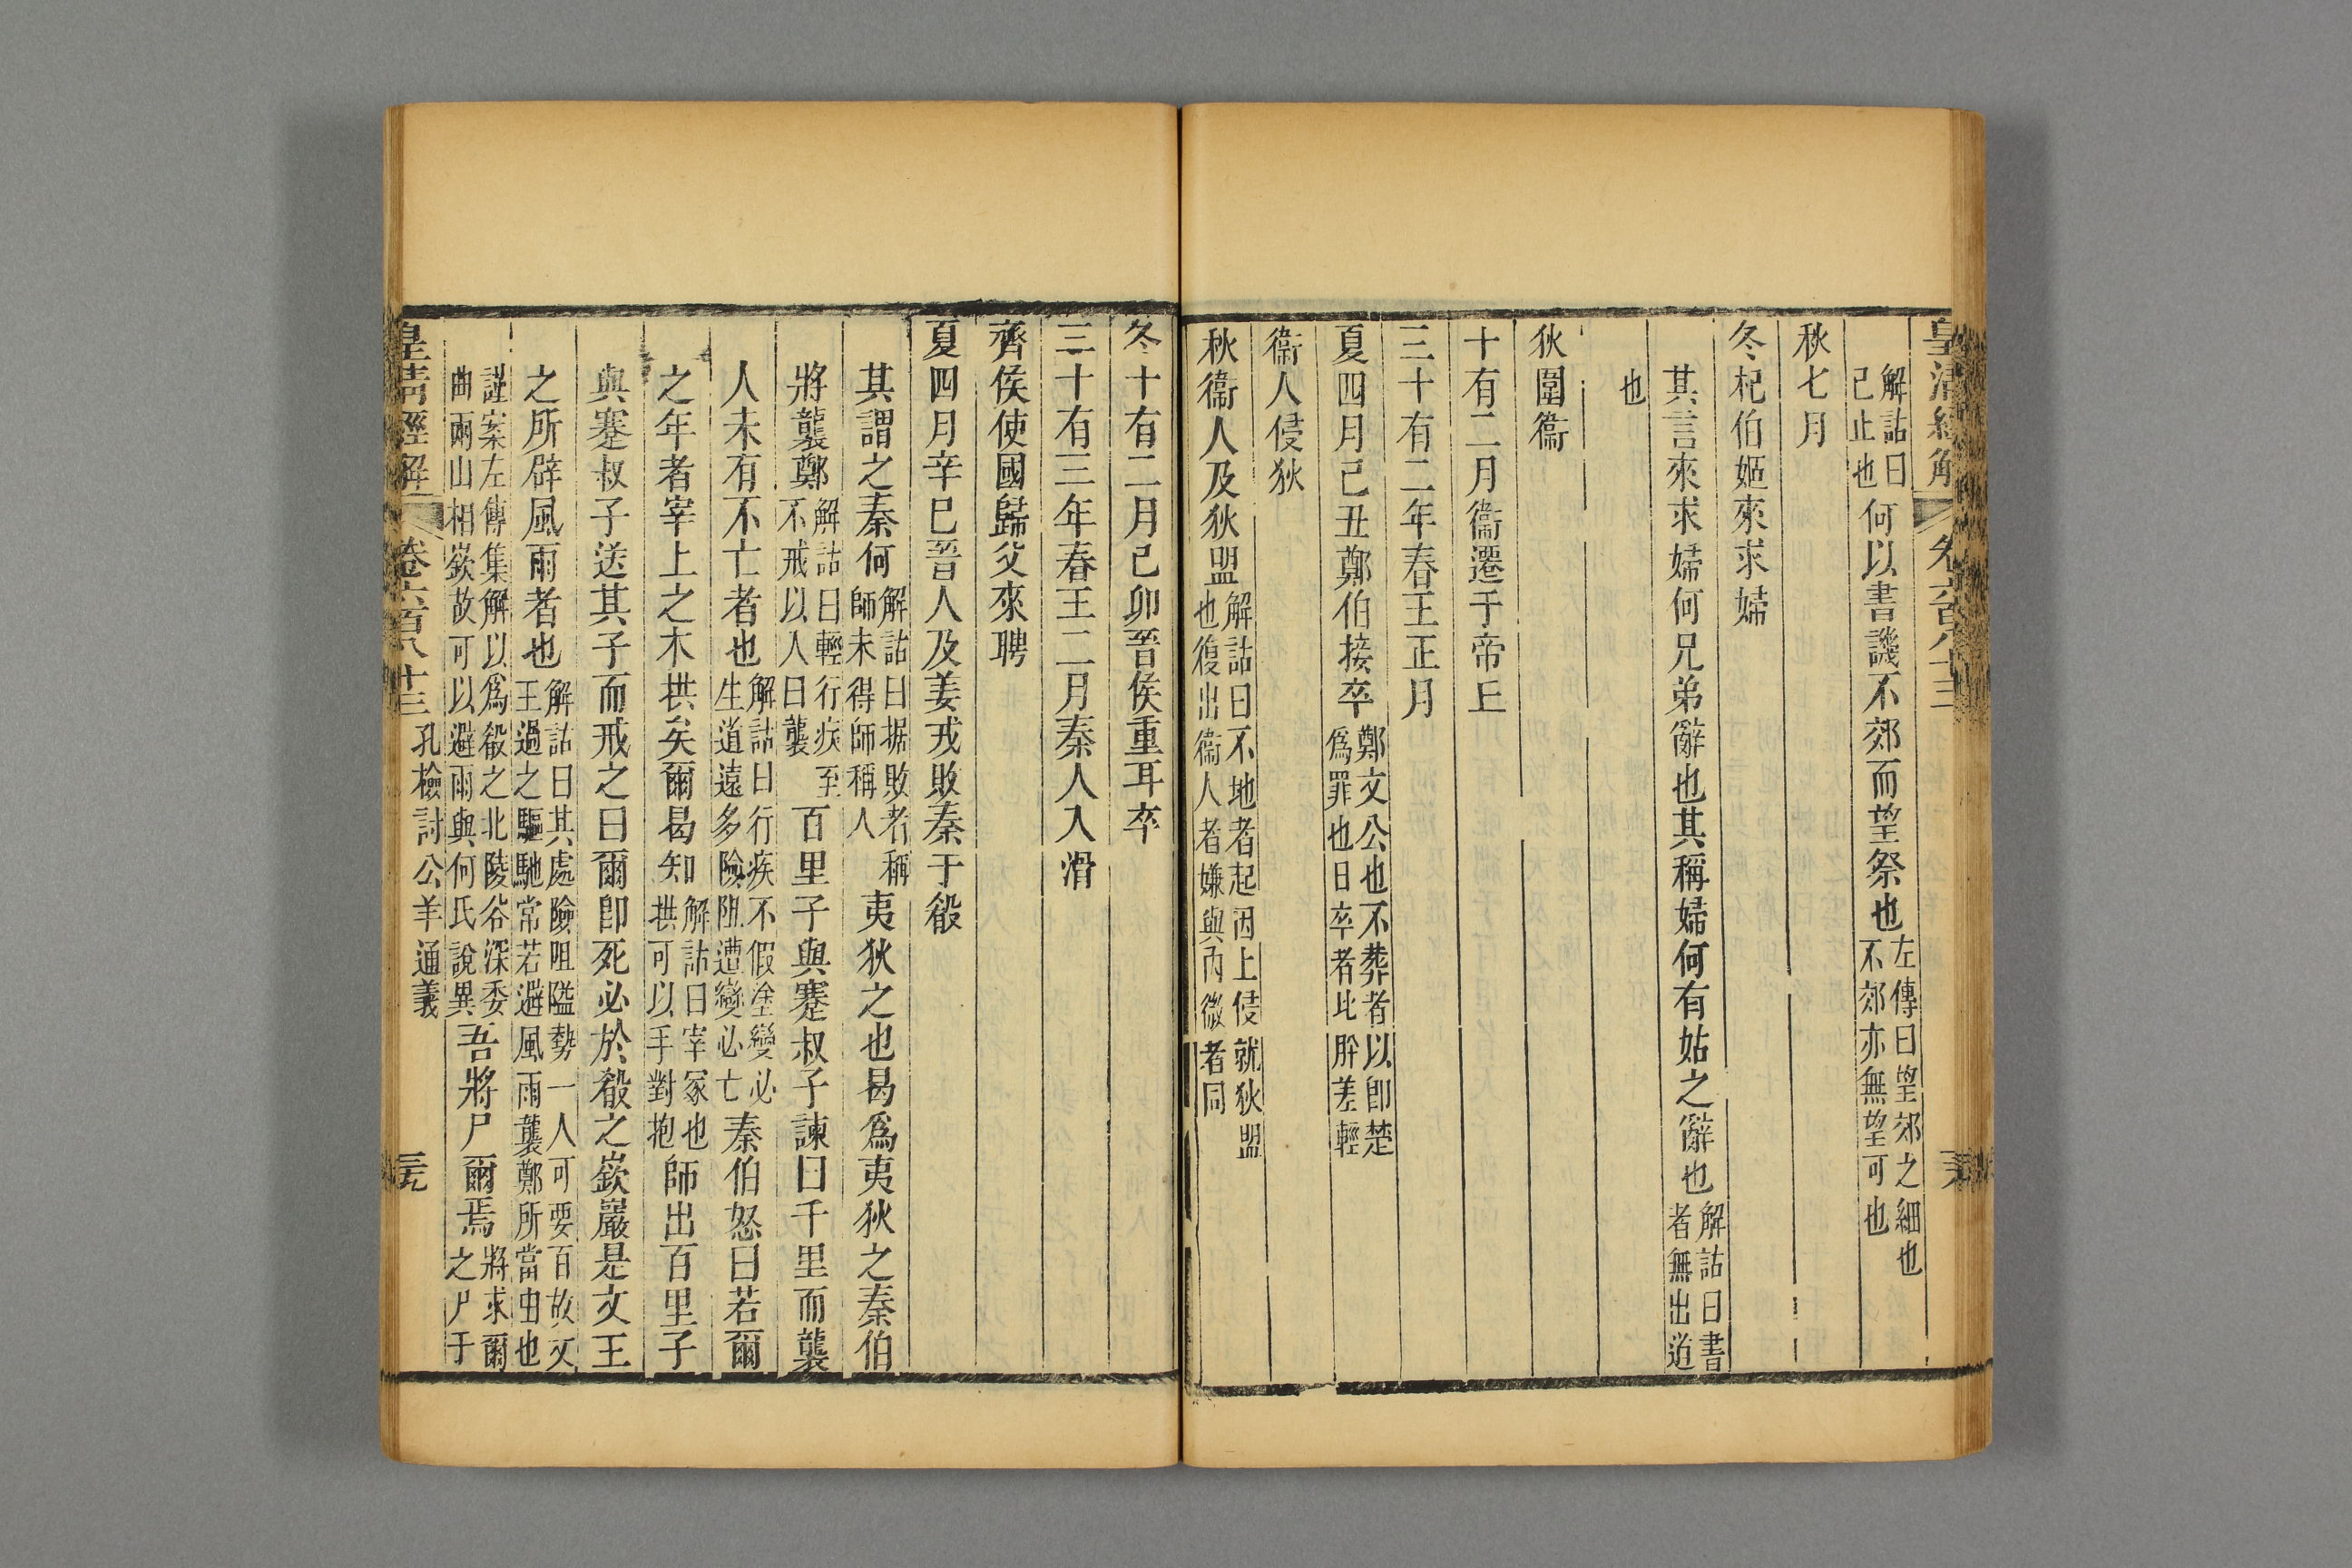 皇清經解
卷六百八十三
解詁曰
已止也
何以書譏不郊而望祭也
左傳曰望郊之細也
不郊亦無望可也
秋七月
冬杞伯姬來求婦
其言來求婦何兄弟辭也其稱婦何有姑之辭也
解詁曰書
者無出道
也
狄圍衞
十有二月衞遷于帝丘
三十有二年春王正月
夏四月己丑鄭伯接卒
鄭文公也不葬者以卽楚
爲罪也日卒者比肸差輕
衞人侵狄
秋衞人及狄盟
解詁曰不地者起因上侵就狄盟
也復出衞人者嫌與內微者同
冬十有二月己卯晉侯重耳卒
三十有三年春王二月秦人入滑
齊侯使國歸父來聘
夏四月辛巳晉人及姜戎敗秦于殽
其謂之秦何
解詁曰据敗者稱
師未得師稱人
夷狄之也曷爲夷狄之秦伯
將襲鄭
解詁曰輕行疾至
不戒以入曰襲
百里子與蹇叔子諫曰千里而襲
人未有不亡者也
解詁曰行疾不假塗變必
生道遠多險阻遭變必亡
秦伯怒曰若爾
之年者宰上之木拱矣爾曷知
解詁曰宰冢也
拱可以手對抱
師出百里子
與蹇叔子送其子而戒之曰爾卽死必於殽之嶔巖是文王
之所辟風雨者也
解詁曰其處險阻隘勢一人可要百故文
王過之驅馳常若避風雨襲鄭所當由也
謹案左傳集解以爲殽之北陵谷深委
曲兩山相嶔故可以避雨與何氏說異
吾將尸爾焉
將求爾
之尸于
皇清經解
卷六百八十三
孔檢討公羊通義
三九